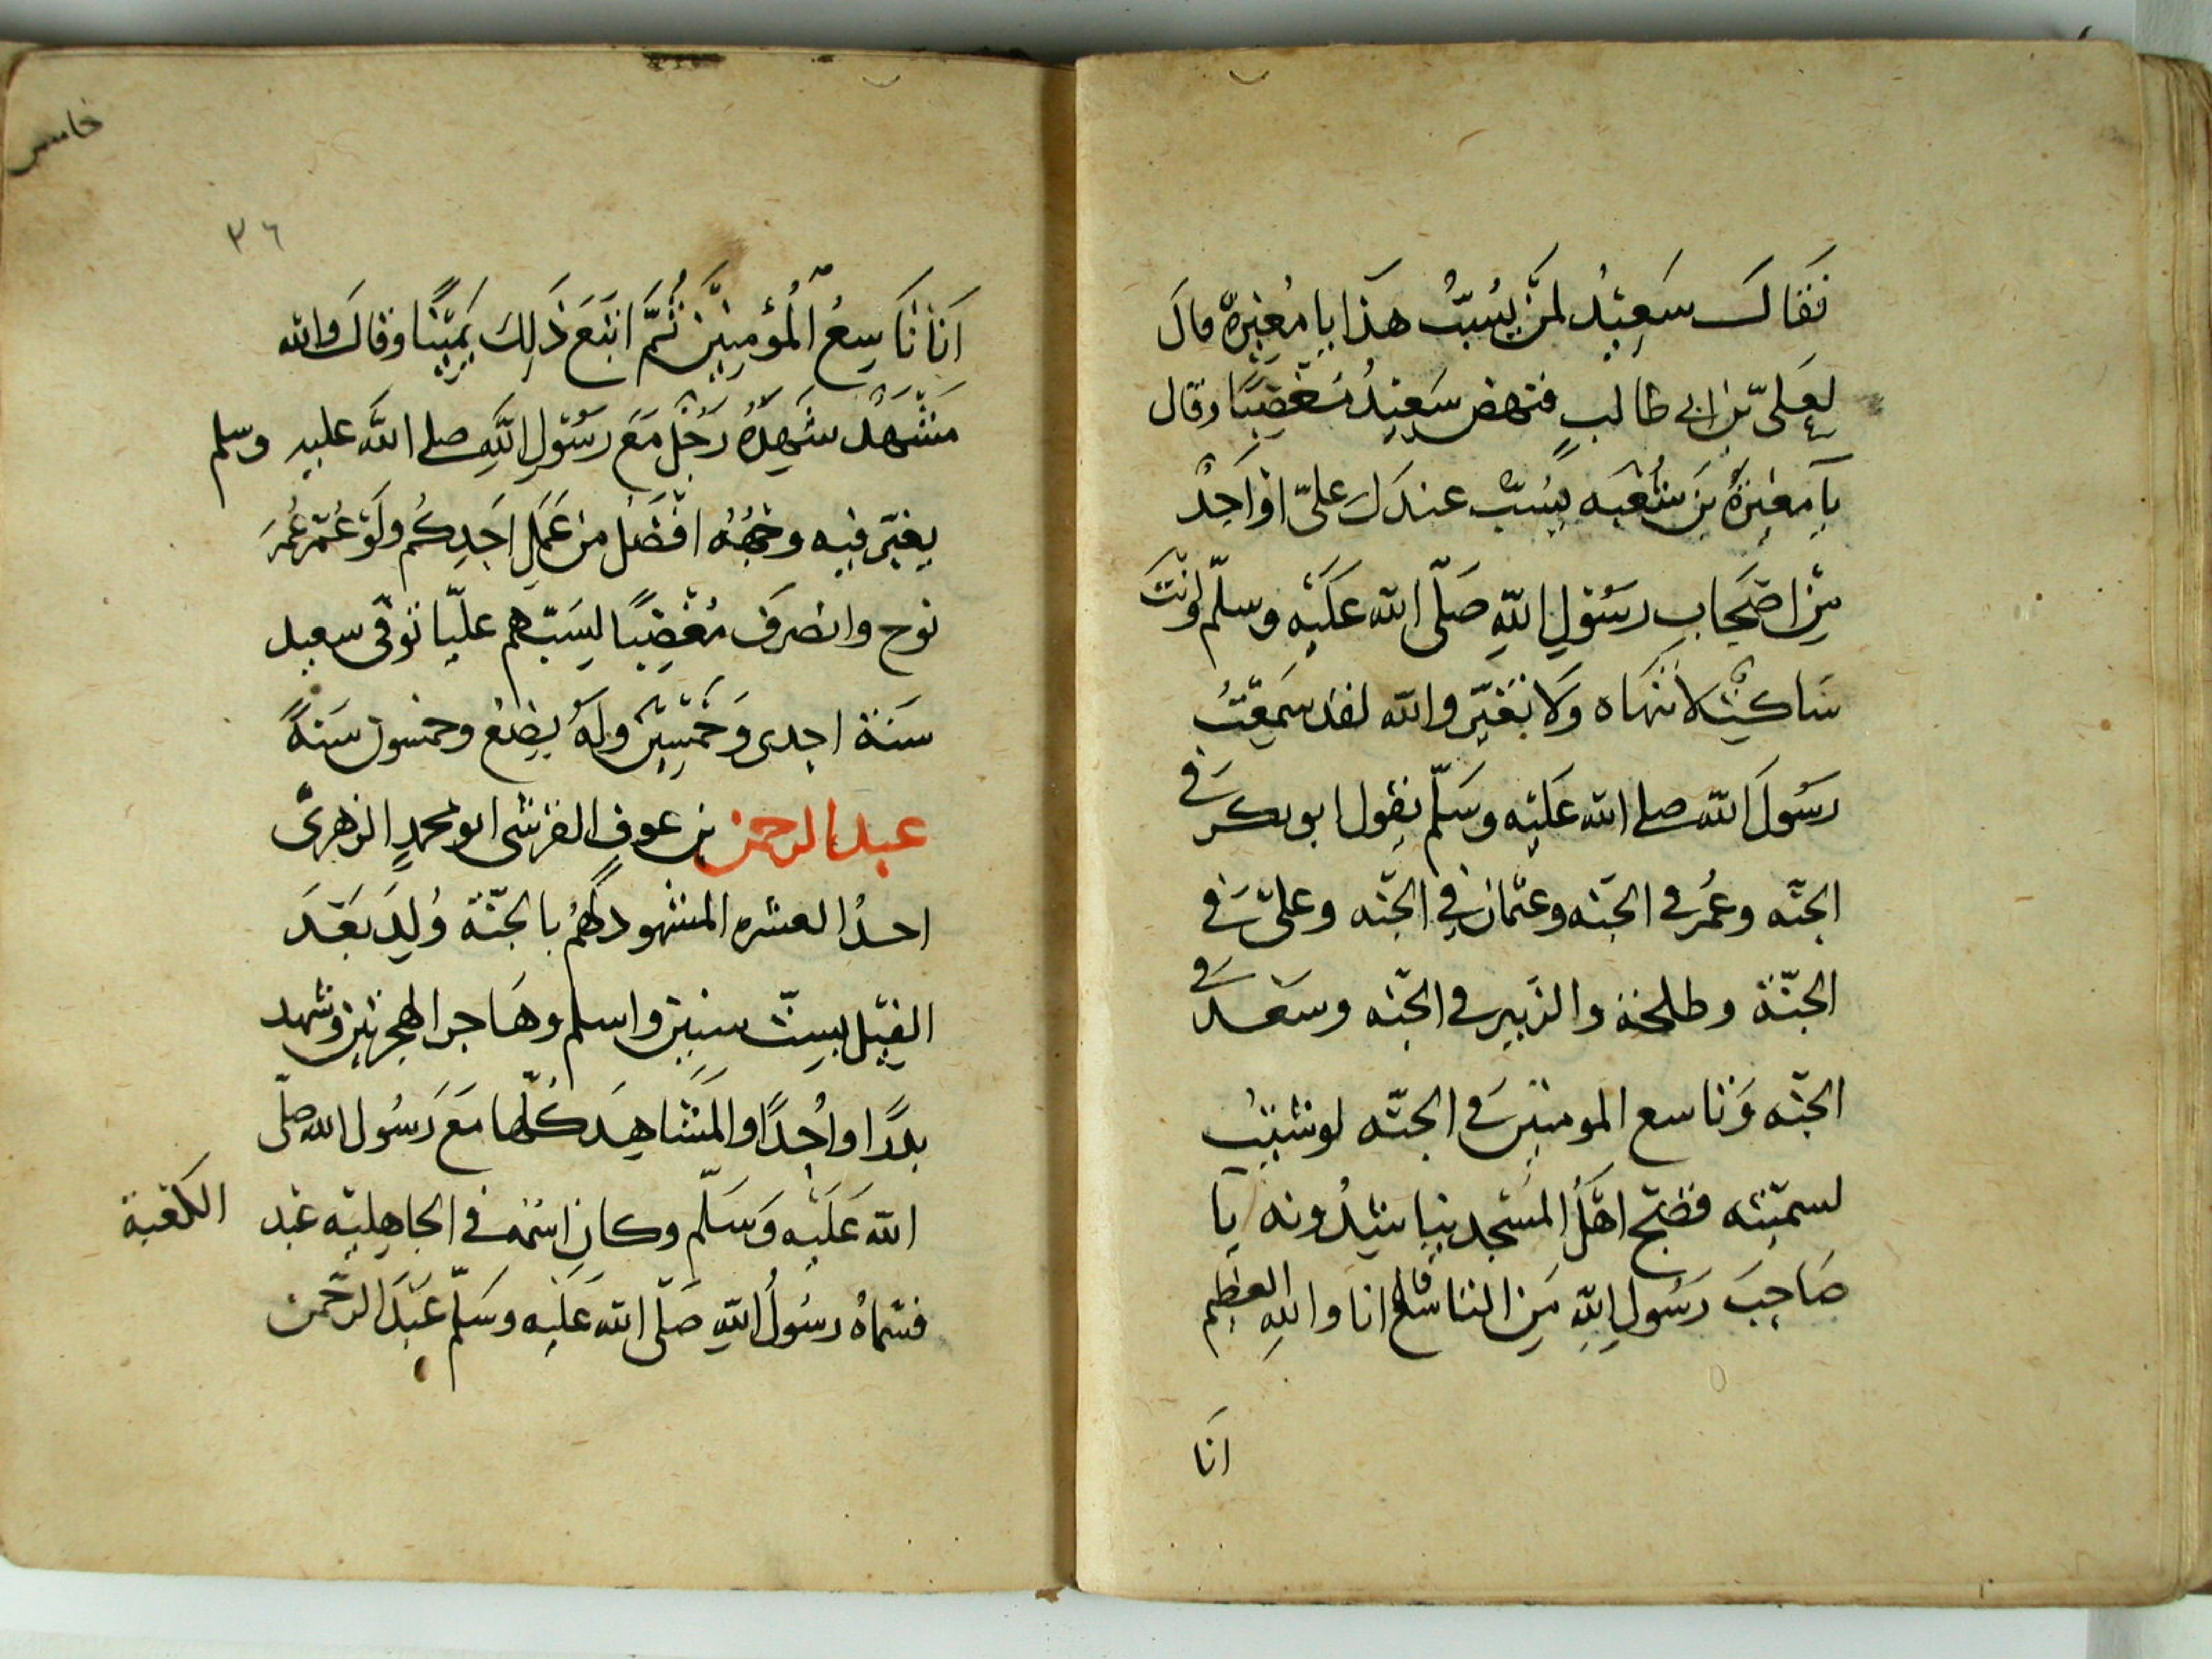 فَقَالَ سَعِيْدُ لِمَنْ يُسَبُّ هَذَا يا مُغِيرةُ قالَ
لِعَلىّ بن ابى طالبٍ فنهض سَعِيْدُ مُغْضِبًا وقال
يا مغيرةُ بنَ شُعْبَه يُسَبُّ عندَك علىّ اوْ اَحِدُ
مِنْ اصْحَابِ رسُولِ اللهِ صَلّى الله عَلَيْه وسلّم وانْتَ
سَاكِتٌ لا تنهَاه وَلا تُغَيِّر والله لقد سَمِعْتُ
رسُولَ الله صلى الله عَليْه وسَلّم يقول ابو بكر فى
الجنّه وعُمر فى الجنّه وعثمان فى الجنّه وعلىّ فى
الجنّة وطلحة والزبير فى الجنّه وسَعْد فى
الجنّه وَتاسع المومنين فى الجنّه لو شئتُ
لسمّيته فضَجّ اهْلُ المسْجد يناشدُونه يا
صَاحِبَ رسُولِ اللهِ مَنِ التاسعُ قال انا واللهِ العظيم
انَا
خامس
٣٦
اَنَا تَاسِعُ الْمُؤمِنِيْن ثُمَّ اتْبَعَ ذَلِكَ يَمِيْنًا وقالَ والله
مَشْهَدٌ شَهِدَهُ رَجُلٌ مَعَ رسُوْلِ اللهِ صلى الله عليه وسلم
يغبّر فيه وجْهُهُ افْضَلُ من عَمَلِ اَحَدِكُم ولَوْ عُمّرَ عُمُرَ
نوح وانصرَف مُغْضِبًا لِسَبّهم عليّا توفى سعيد
سَنَة احدى وَخَمْسِيْن ولَهُ بِضْعُ وخمسون سَنةً
عبد الرحمن بن عوفٍ القرشى ابو محمدٍ الزهرىّ
احدُ العشره المشهود لهُم بالجنّة وُلِدَ بَعْدَ
الفِيْل بِسِتّ سنين واسلم وهَاجر الهجرتين وشهد
بدرًا واُحُدًا والمَشَاهِدَ كُلّها مَعَ رَسُول الله صلّى
الله عَلَيْه وَسَلّم وكان اسْمُه فى الجاهِليّه عَبْد الكعْبة
فسَمّاهُ رسُولُ اللهِ صَلّى الله عَلَيْه وسَلّم عَبْدَ الرَّحْمن